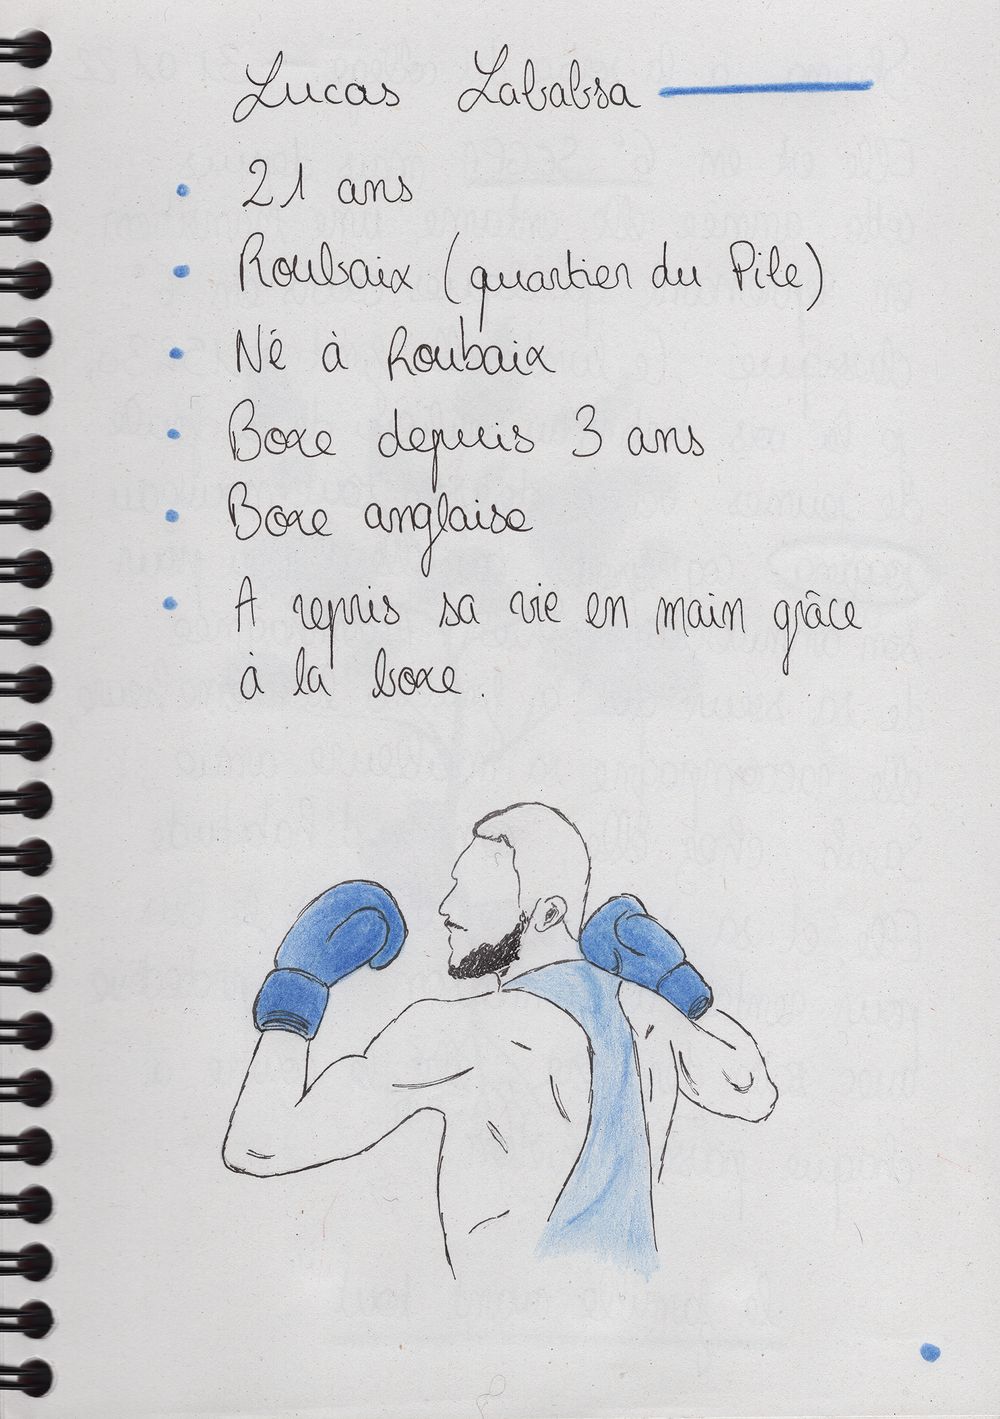 Lucas Lababsa
21 ans
Roubaix (quartier du Pile)
Né à Roubaix
Boxe depuis 3 ans
Boxe anglaise
A repris sa vie en main grâce
à la boxe.